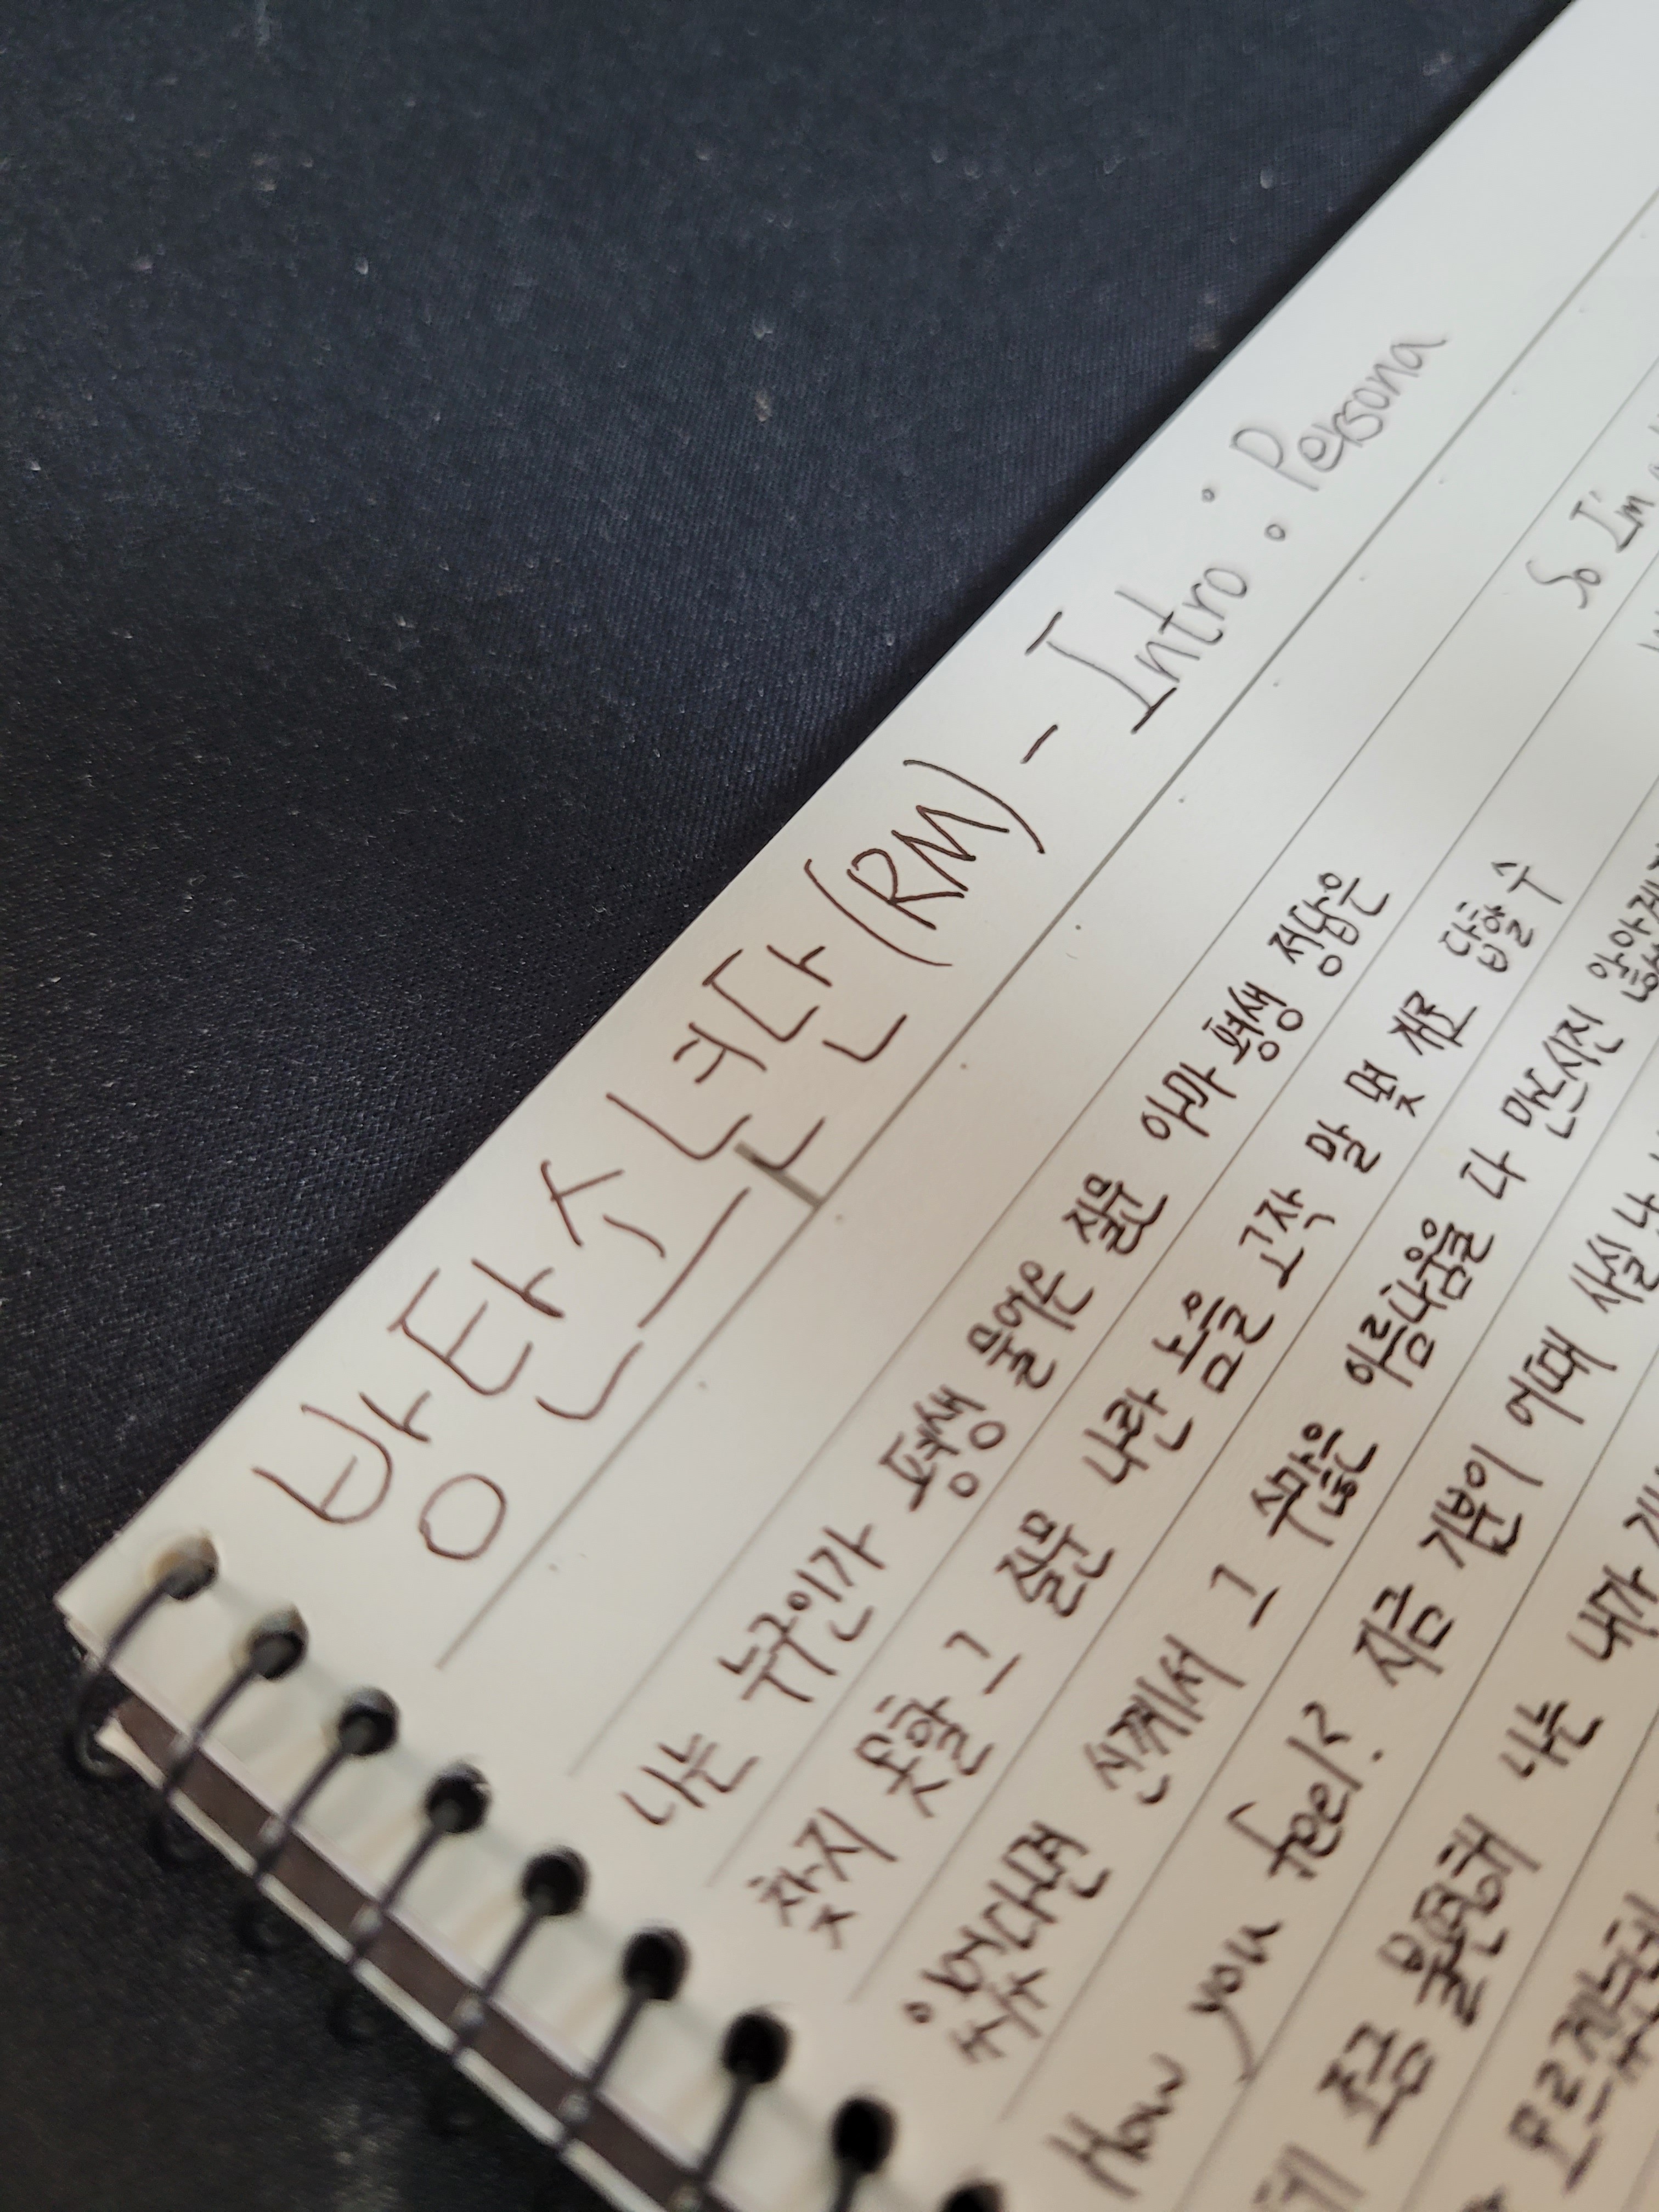 방탄소년단(RM) - Intro : Persona
나는 누구인가 평생 물어온 질문 아마 평생 정답은
찾지 못할 그 질문 나란 놈을 고작 말 몇 개로 답할 수
있었다면 신께서 그 수많은 아름다움을 다 만드시진 않았겠지
How you feel? 지금 기분이 어때 사실 나
조금 불편해 나는 내가
모르겠
So I'm